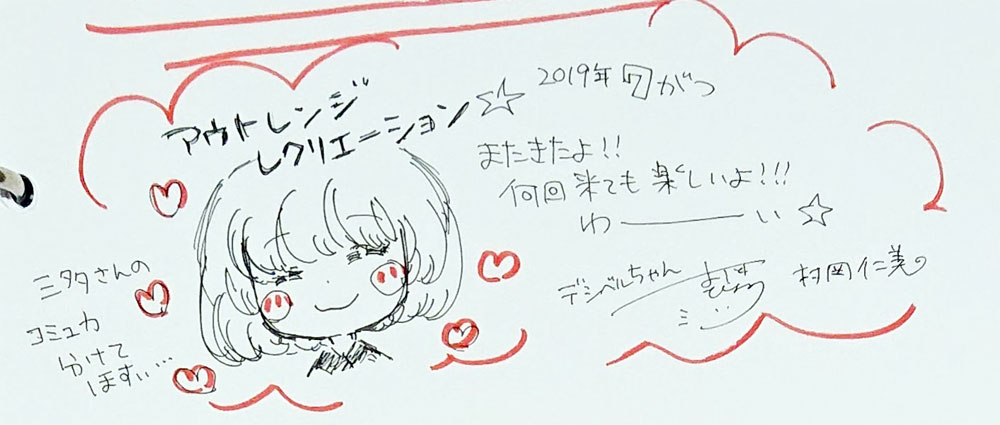 アウトレンジ
レクリエーション☆
2019年7がつ
またきたよ!!
何回来ても楽しいよ!!!
わ―――い☆
デシベルちゃん
村岡仁美
三多さんの
コミュカ
分けて
ほすぃ…